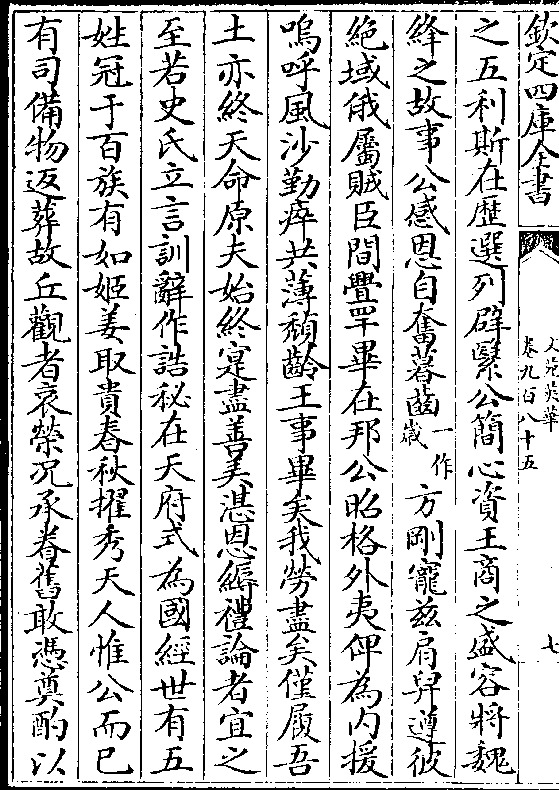 欽定四庫全書
文苑英華
卷九百八十五
七
之五利斯在歴選列辟繄公簡心資王商之盛容將魏
絳之故事公感恩自奮暮齒一作歲方剛寵兹肩舁遵彼
絶域俄屬賊臣間舋罕畢在邦公昭格外夷俾為内援
嗚呼風沙勤瘁共薄頽齡王事畢矣我勞盡矣僅屆吾
土亦終天命原夫始終寔盡善美湛恩縟禮論者宜之
至若史氏立言訓辭作誥秘在天府式為國經世有五
姓冠于百族有如姬姜取貴春秋擢秀天人惟公而已
有司備物返葬故丘觀者哀榮况承眷舊敢憑奠酌以